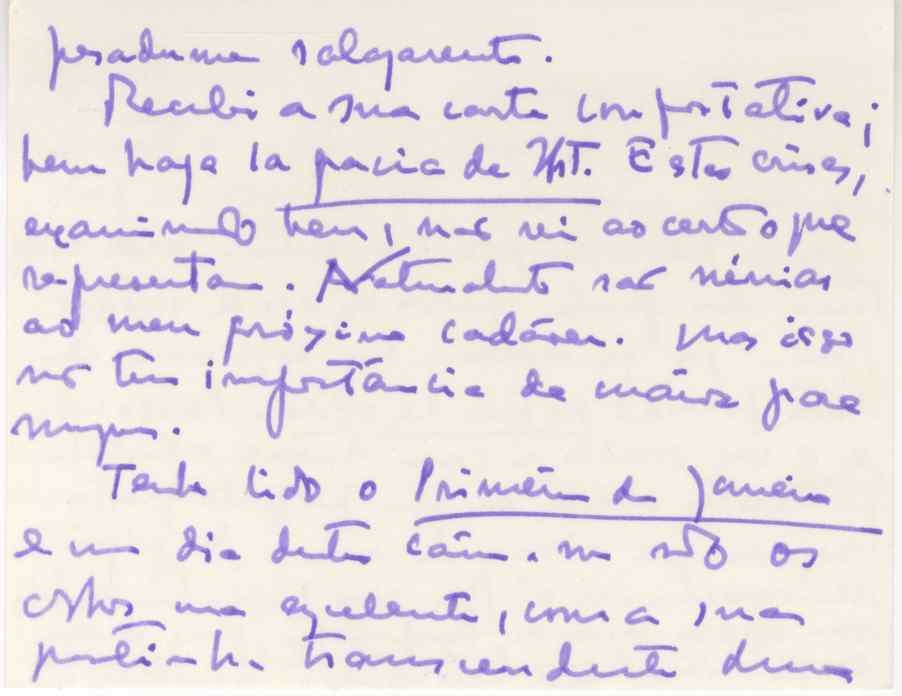 pesadume salgarento.
Recebi a sua carta confortativa;
bem haja la gracia de Hst. Estas crises,
examinando bem, não sei ao certo o que
representam. Naturalmente são nénias
ao meu próximo cadáver. Mas isso
não tem importância de maior para
ninguém.
Tenho lido o Primeiro de Janeiro
e um dia destes caiu-me sob os
olhos uma excelente, com a sua
pontinha transcendente duma